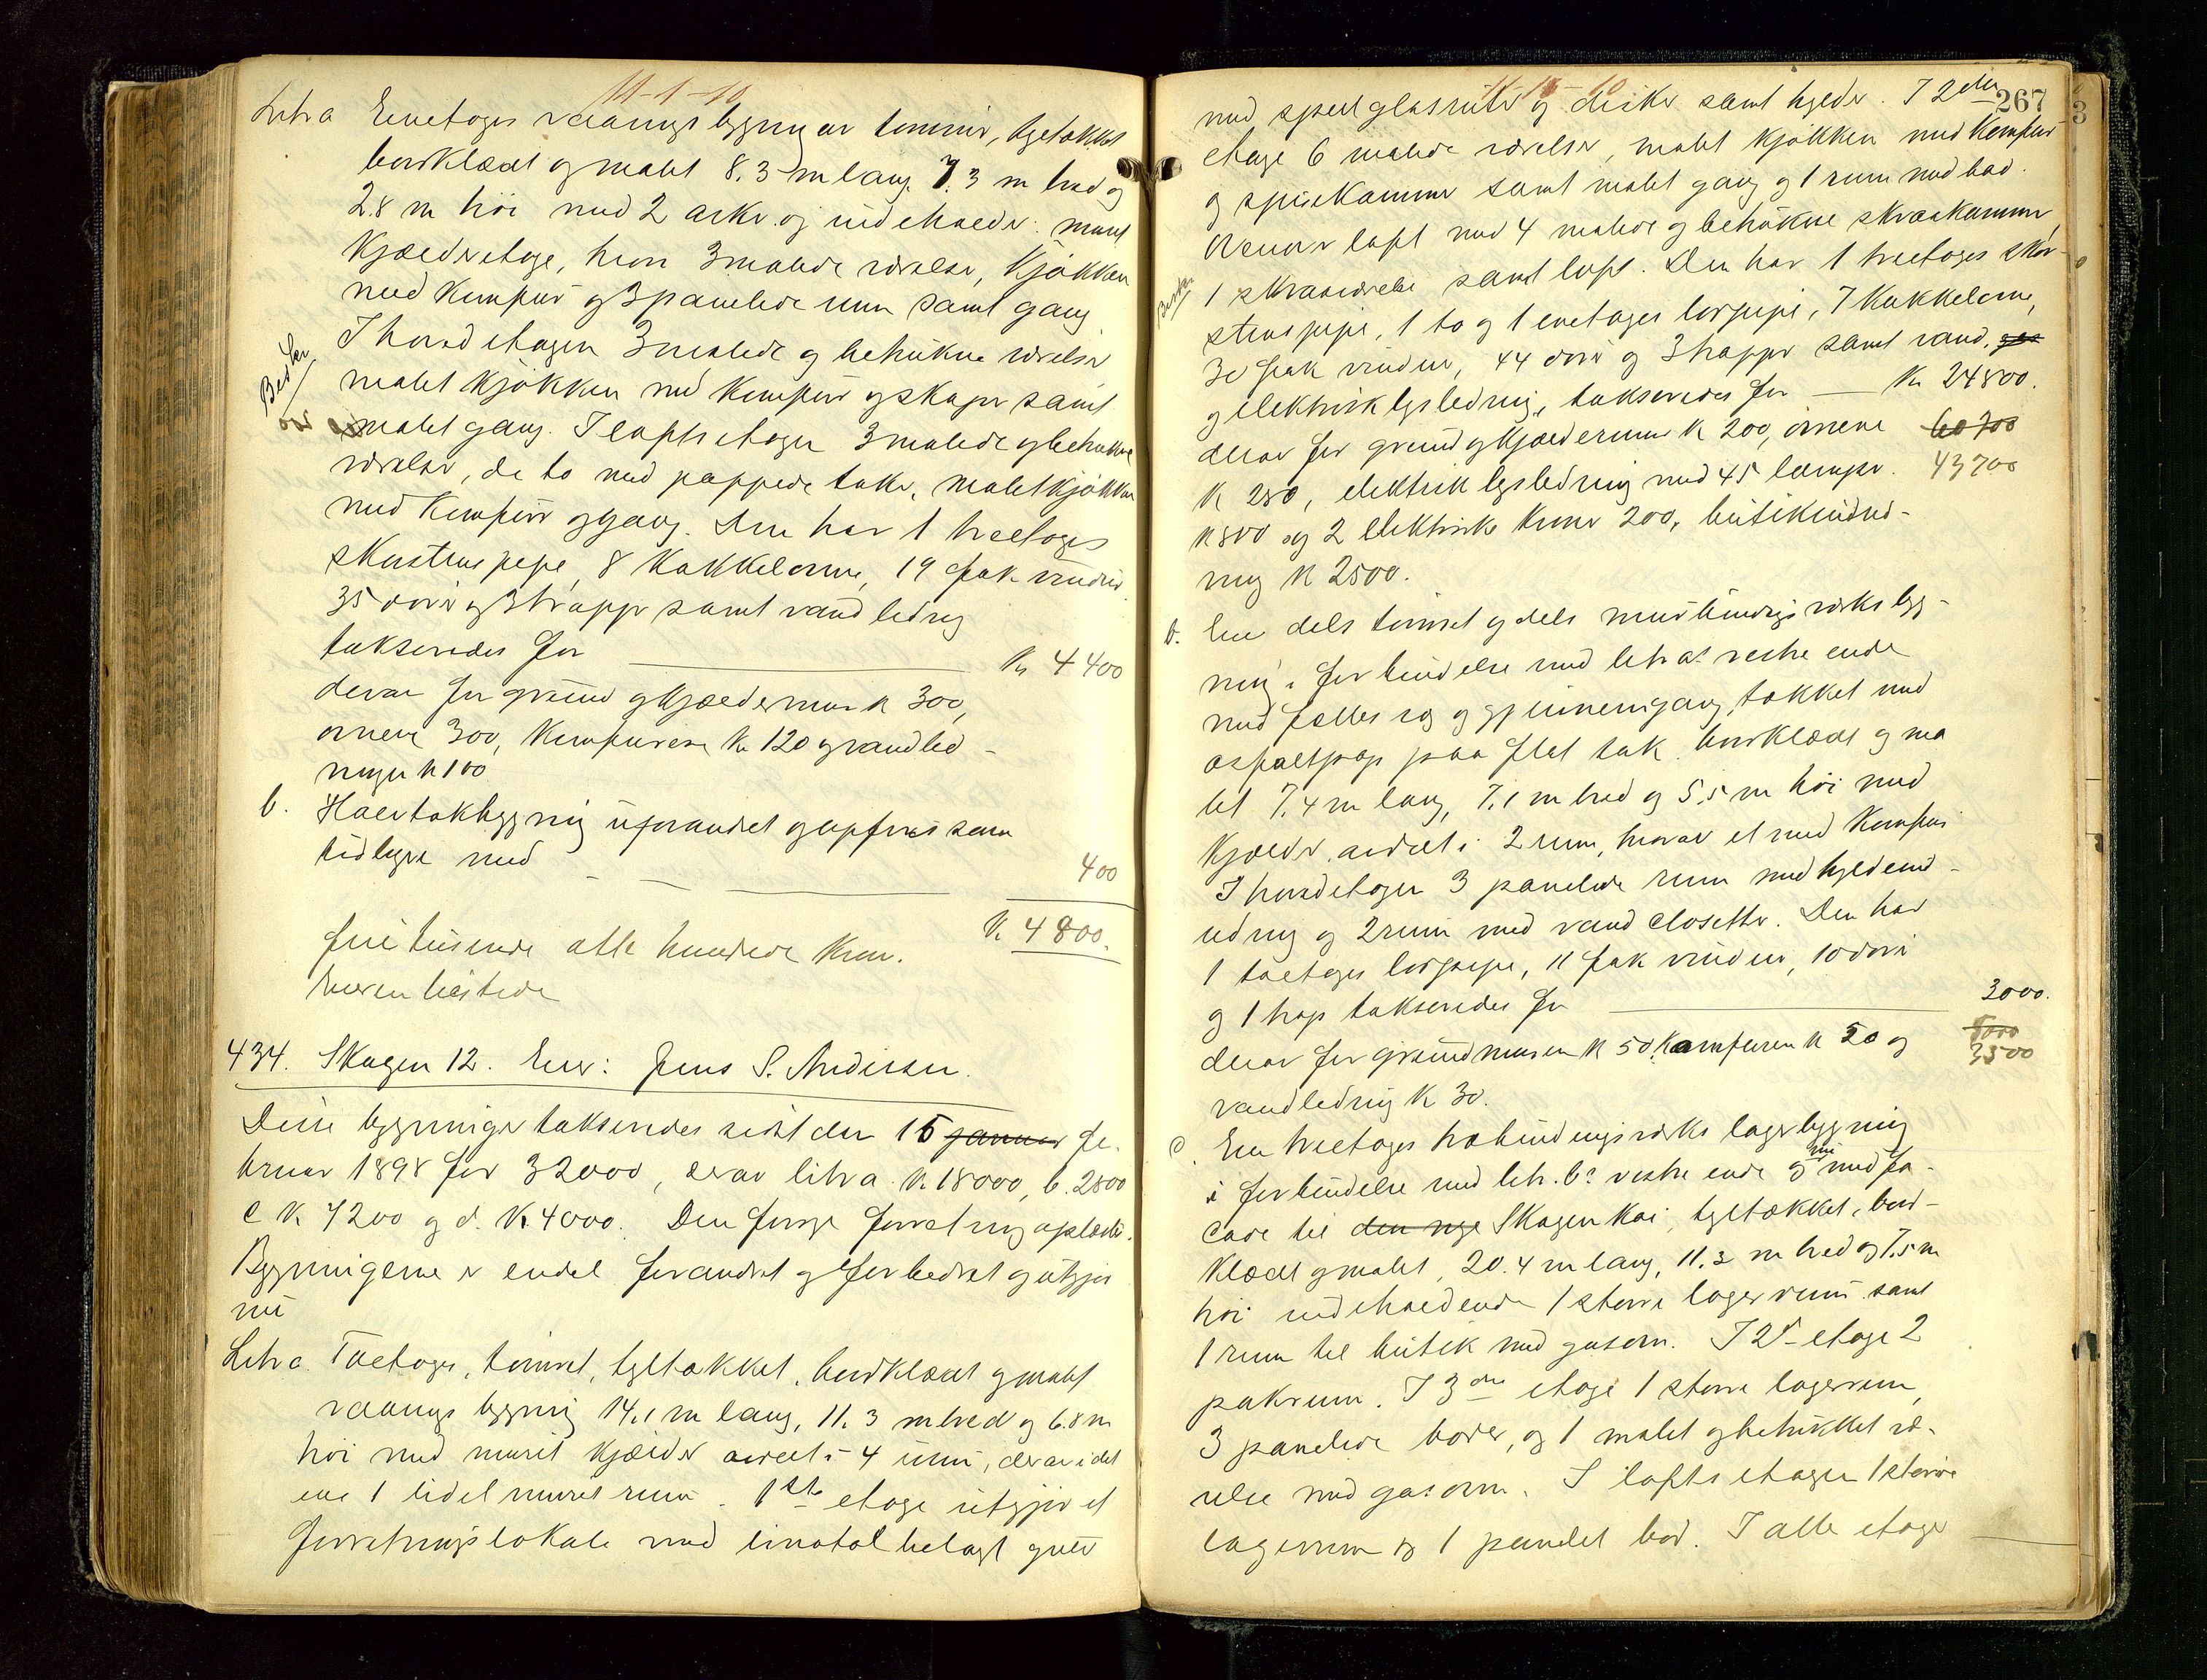 11-1-10
Litra Enetages vaaningsbygning av tømmer, tegltækket
bordklædt og malet 8.3 m lang 7.3 m bred og
2.8 m høi med 2 arker og indeholder: muret
kjælderetage, hvori 3 malede værelser, kjøkken
med komfur og 3 panelede rum samt gang
I hovedetagen 3 malede og betrukne værelser
Beskr
malet kjøkken med komfur og skaper samt
malet gang. I loftsetagen 3 malede og betrukne
værelser, de to med pappede take, malet kjøkken
med komfur og gang. Den har 1 treetages
skorstenspipe, 8 kakkelovne, 19 fak vinduer
35 dører og 3 trapper samt vandledning
takseredes for Kr 4400
derav for grund og kjældermur kr 300,
ovnene 300, komfurene kr 120 og vandled-
ningen kr 100
b. Halvtakbygning uforandret og opføres som
tidligere med 400
Kr 4800.
fire tusinde otte hundrede kroner.
Eieren tilstede
434. Skagen 12. Eier: Jens S. Andersen.
Disse bygninger takseredes sidst den 15 januar fe-
bruar 1898 for 32000, derav litra a kr 18000, b. 2800
c kr 7200 og d. kr 4000. Den forrige forretning oplæstes.
Bygningerne er endel forandret og forbedret og utgjør
nu
Litra a. Toetages, tømret, tegltækket, bordklædt og malet
vaaningsbygning 14.1 m lang, 11.3 m bred og 6.8 m
høi med muret kjælder avdelt i 4 rum, derav i det
ene 1 lidet muret rum. 1ste etage utgjør et
forretningslokale med linotolbelagt gulv
11-1-10
267
med speilglasruter og diske samt hylder. I 2den
etage 6 malede værelser, malet kjøkken med komfur
og spisekammer samt malet gang og 1 rum med bad.
Ovenover loft med 4 malede og betrukne skraakammer
Beskr
1 skraaværelse samt loft. Den har 1 treetages skor-
stenspipe, 1 to og 1 enetages løspipe, 7 kakkelovne,
30 fak vinduer, 44 dører og 3 trapper samt vand, gas
og elektrisk lysledning, takseredes for Kr 24800.
derav for grund og kjældermur kr 200, ovnene 60700
kr 280, elektrisk lysledning med 45 lamper 43700
kr 800 og 2 elektriske kroner 200, butikindred-
ning kr 2500.
b. En dels tømret og dels murbindingsverks byg-
ning i forbindelse med litr a's vestre ende
med fælles væg og gjennemgang, tækket med
asfaltpap paa flat tak, bordklædt og ma
let 7.4 m lang, 7.1 m bred og 5.5 m høi med
kjælder avdelt i 2 rum, hvorav et med komfur
I hovedetagen 3 panelede rum med hyldeind-
redning og 2 rum med vandclosetter. Den har
1 toetages løspipe, 11 fak vinduer, 10 dører
og 1 trap takseredes for 3000.
derav for grundmuren kr 50, komfuren kr 50 og 8000
3500
vandledning kr 30.
c. En treetages træbindingsverks lagerbygning
i forbindelse med litr. b's vestre ende og nu med fa-
cade til den nye Skagenkai, tegltækket, bord-
klædt og malet, 20.4 m lang, 11.3 m bred og 7.5 m
høi indeholdende 1 større lagerrum samt
1 rum til butik med gasovn. I 2d- etage 2
pakrum. I 3die etage 1 større lagerrum,
3 panelede boder, og 1 malet og betrukket væ-
relse med gasovn. I loftsetagen 1 større
lagerrum og 1 panelet bod. I alle etager